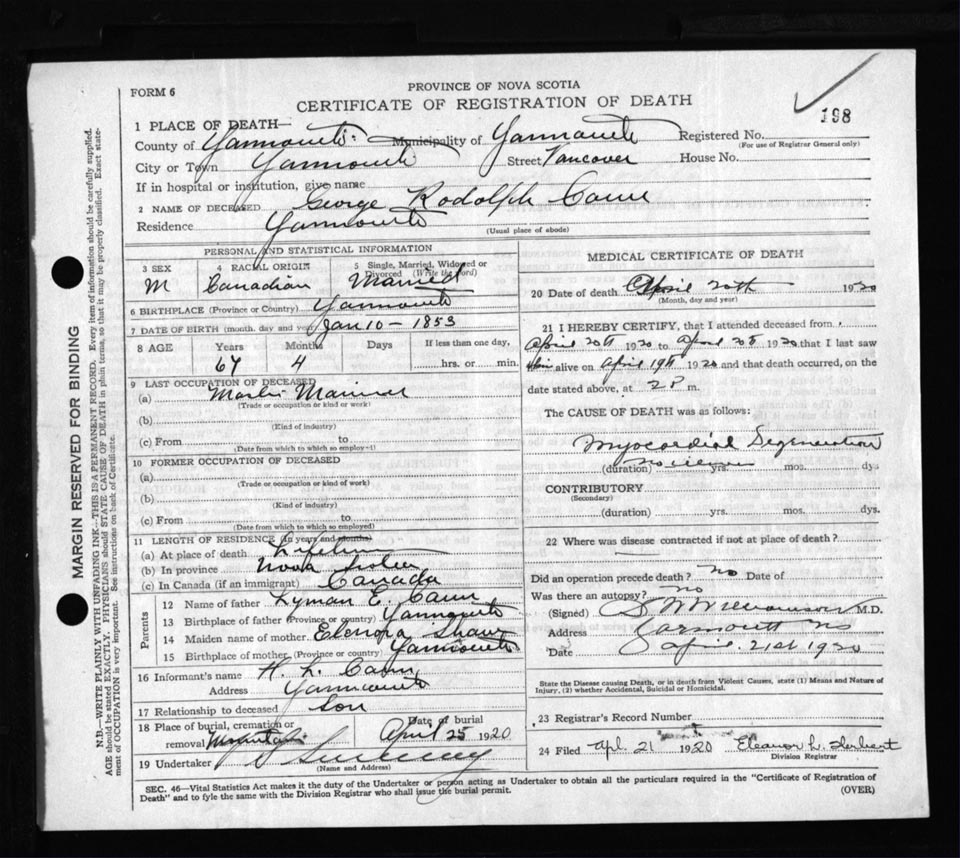 FORM 6
PROVINCE OF NOVA SCOTIA
CERTIFICATE OF REGISTRATION OF DEATH
198
1 PLACE OF DEATH—
County of Yarmouth Municipality of Yarmouth Registered No.
(For use of Registrar General only)
City or Town Yarmouth Street Vancover House No.
If in hospital or institution, give name
2 NAME OF DECEASED George Rodolph Cann
Residence Yarmouth (Usual place of abode)
PERSONAL AND STATISTICAL INFORMATION
3 SEX M
4 RACIAL ORIGIN Canadian
5 Single, Married, Widowed or Divorced (Write the word) Married
6 BIRTHPLACE (Province or Country) Yarmouth
7 DATE OF BIRTH (month, day and year) Jan 10 – 1853
8 AGE Years Months Days If less than one day,
67 4 hrs. or min.
9 LAST OCCUPATION OF DECEASED
(a) Master Mariner
(Trade or occupation or kind of work)
(b)
(Kind of industry)
(c) From to
(Date from which to which so employed)
10 FORMER OCCUPATION OF DECEASED
(a)
(Trade or occupation or kind of work)
(b)
(Kind of industry)
(c) From to
(Date from which to which so employed)
11 LENGTH OF RESIDENCE (in years and months)
(a) At place of death Lifetime
(b) In province Nova Scotia
(c) In Canada (if an immigrant) Canada
Parents
12 Name of father Lyman E. Cann
13 Birthplace of father (Province or country) Yarmouth
14 Maiden name of mother Elenora Shaw
15 Birthplace of mother (Province or country) Yarmouth
16 Informant's name H. L. Cann
Address Yarmouth
17 Relationship to deceased Son
18 Place of burial, cremation or removal Mountain
Date of burial April 25 1920
19 Undertaker
(Name and Address)
MEDICAL CERTIFICATE OF DEATH
20 Date of death April 20th 1920
(Month, day and year)
21 I HEREBY CERTIFY, that I attended deceased from
April 20th 1920 to April 20th 1920 that I last saw
him alive on April 19th 1920 and that death occurred, on the
date stated above, at 2 P m.
The CAUSE OF DEATH was as follows:
Myocardial Degeneration
(duration) yrs. mos. dys
CONTRIBUTORY
(Secondary)
(duration) yrs. mos. dys.
22 Where was disease contracted if not at place of death?
Did an operation precede death? no Date of
Was there an autopsy? no
(Signed) Williamson M.D.
Address Yarmouth NS
Date April 21st 1920
State the Disease causing Death, or in death from Violent Causes, state (1) Means and Nature of Injury, (2) whether Accidental, Suicidal or Homicidal.
23 Registrar's Record Number
24 Filed Apl. 21 1920 Eleanor L. Herbert
Division Registrar
SEC. 46—Vital Statistics Act makes it the duty of the Undertaker or person acting as Undertaker to obtain all the particulars required in the "Certificate of Registration of
Death" and to fyle the same with the Division Registrar who shall issue the burial permit.
(OVER)
MARGIN RESERVED FOR BINDING
N.B.—WRITE PLAINLY WITH UNFADING INK—THIS IS A PERMANENT RECORD. Every item of information should be carefully supplied.
AGE should be stated EXACTLY. PHYSICIANS should STATE CAUSE OF DEATH in plain terms, so that it may be properly classified. Exact state-
ment of OCCUPATION is very important. See instructions on back of Certificate.